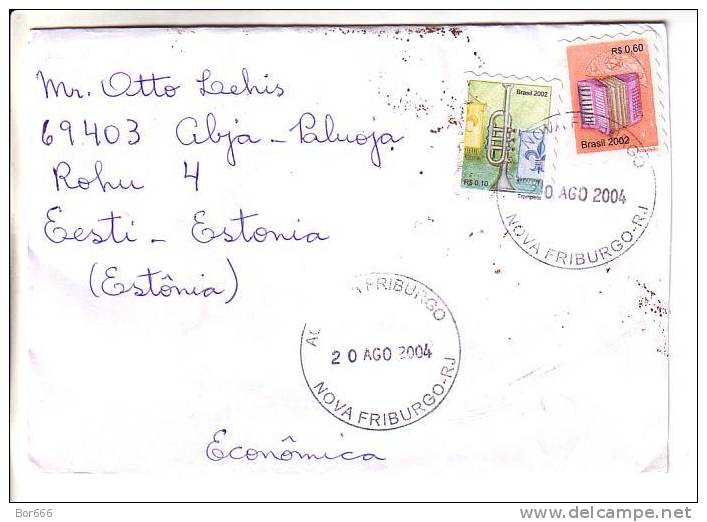 Mr. Otto Lechis
69403 Abja-Paluoja
Rohu 4
Eesti - Estonia
(Estônia)
Econômica
Brasil 2002
R$ 0,10
Trompete
R$ 0,60
Brasil 2002
0 AGO 2004
NOVA FRIBURGO-RJ
FRIBURGO
20 AGO 2004
NOVA FRIBURGO-RJ
Bor666
www.delcampe.net